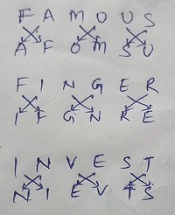 F A M O U S
A F O M S U
F I N G E R
I F G N R E
I N V E S T
N I E V T S